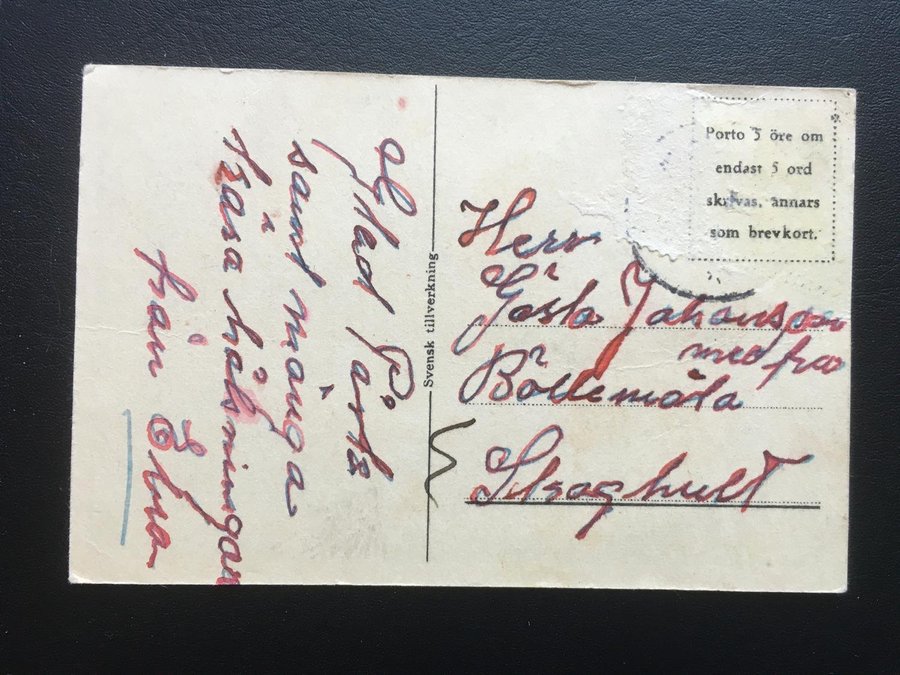 Gl
Glad Påsk
samt många
kära hälsningar
från Elna
Svensk tillverkning
Porto 5 öre om
endast 5 ord
skrivas, annars
som brevkort.
Herr
Gösta Johansson
med fru
Böllemåla